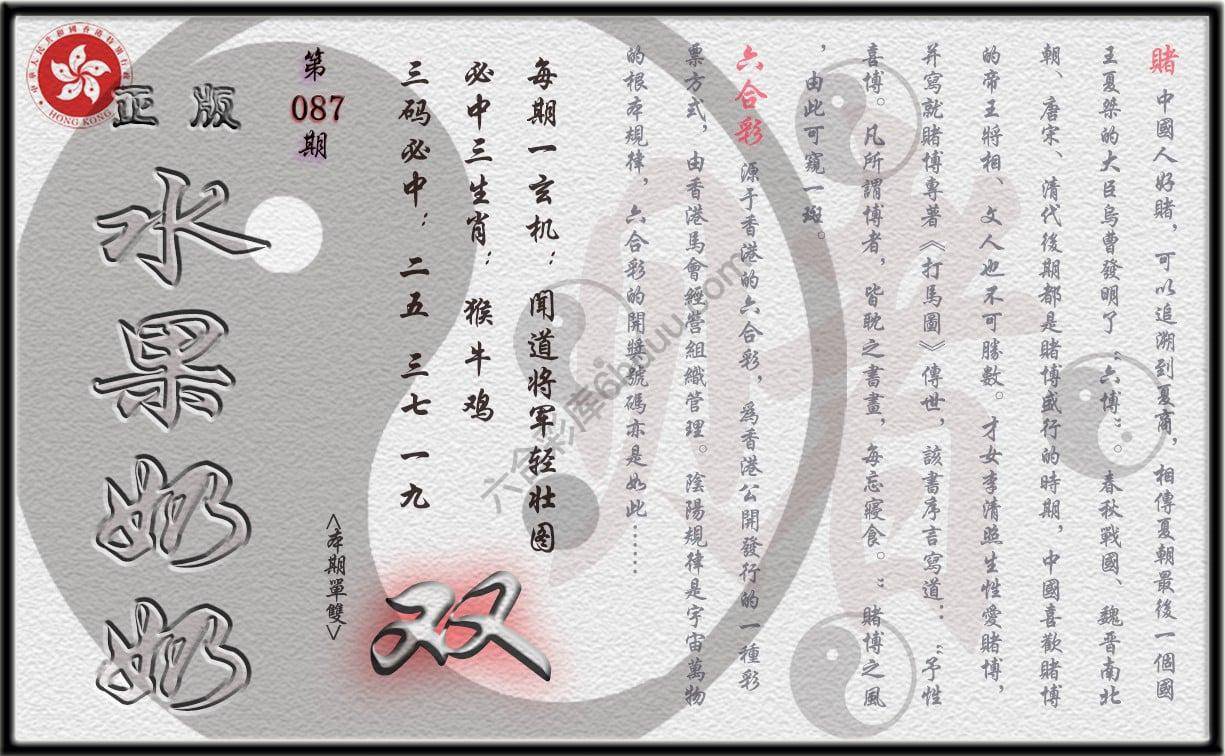 賭 中國人好賭，可以追溯到夏商，相傳夏朝最後一個國
王夏桀的大臣烏曹發明了“六博”。春秋戰國、魏晉南北
朝、唐宋、清代後期都是賭博盛行的時期，中國喜歡賭博
的帝王將相、文人也不可勝數。才女李清照生性愛賭博，
并寫就賭博專著《打馬圖》傳世，該書序言寫道：“予性
喜博。凡所謂博者，皆耽之書畫，每忘寢食。”賭博之風
，由此可窺一斑。
六合彩 源于香港的六合彩，爲香港公開發行的一種彩
票方式，由香港馬會經營組織管理。陰陽規律是宇宙萬物
的根本規律，六合彩的開獎號碼亦是如此……
每期一玄机：闻道将军轻壮图
必中三生肖：猴牛鸡
三码必中：二五 三七 一九
第
087
期
<本期單雙>
双
正版
水果奶奶
中華人民共和國香港特別行政區
HONG KONG
六合彩库6htuu.com